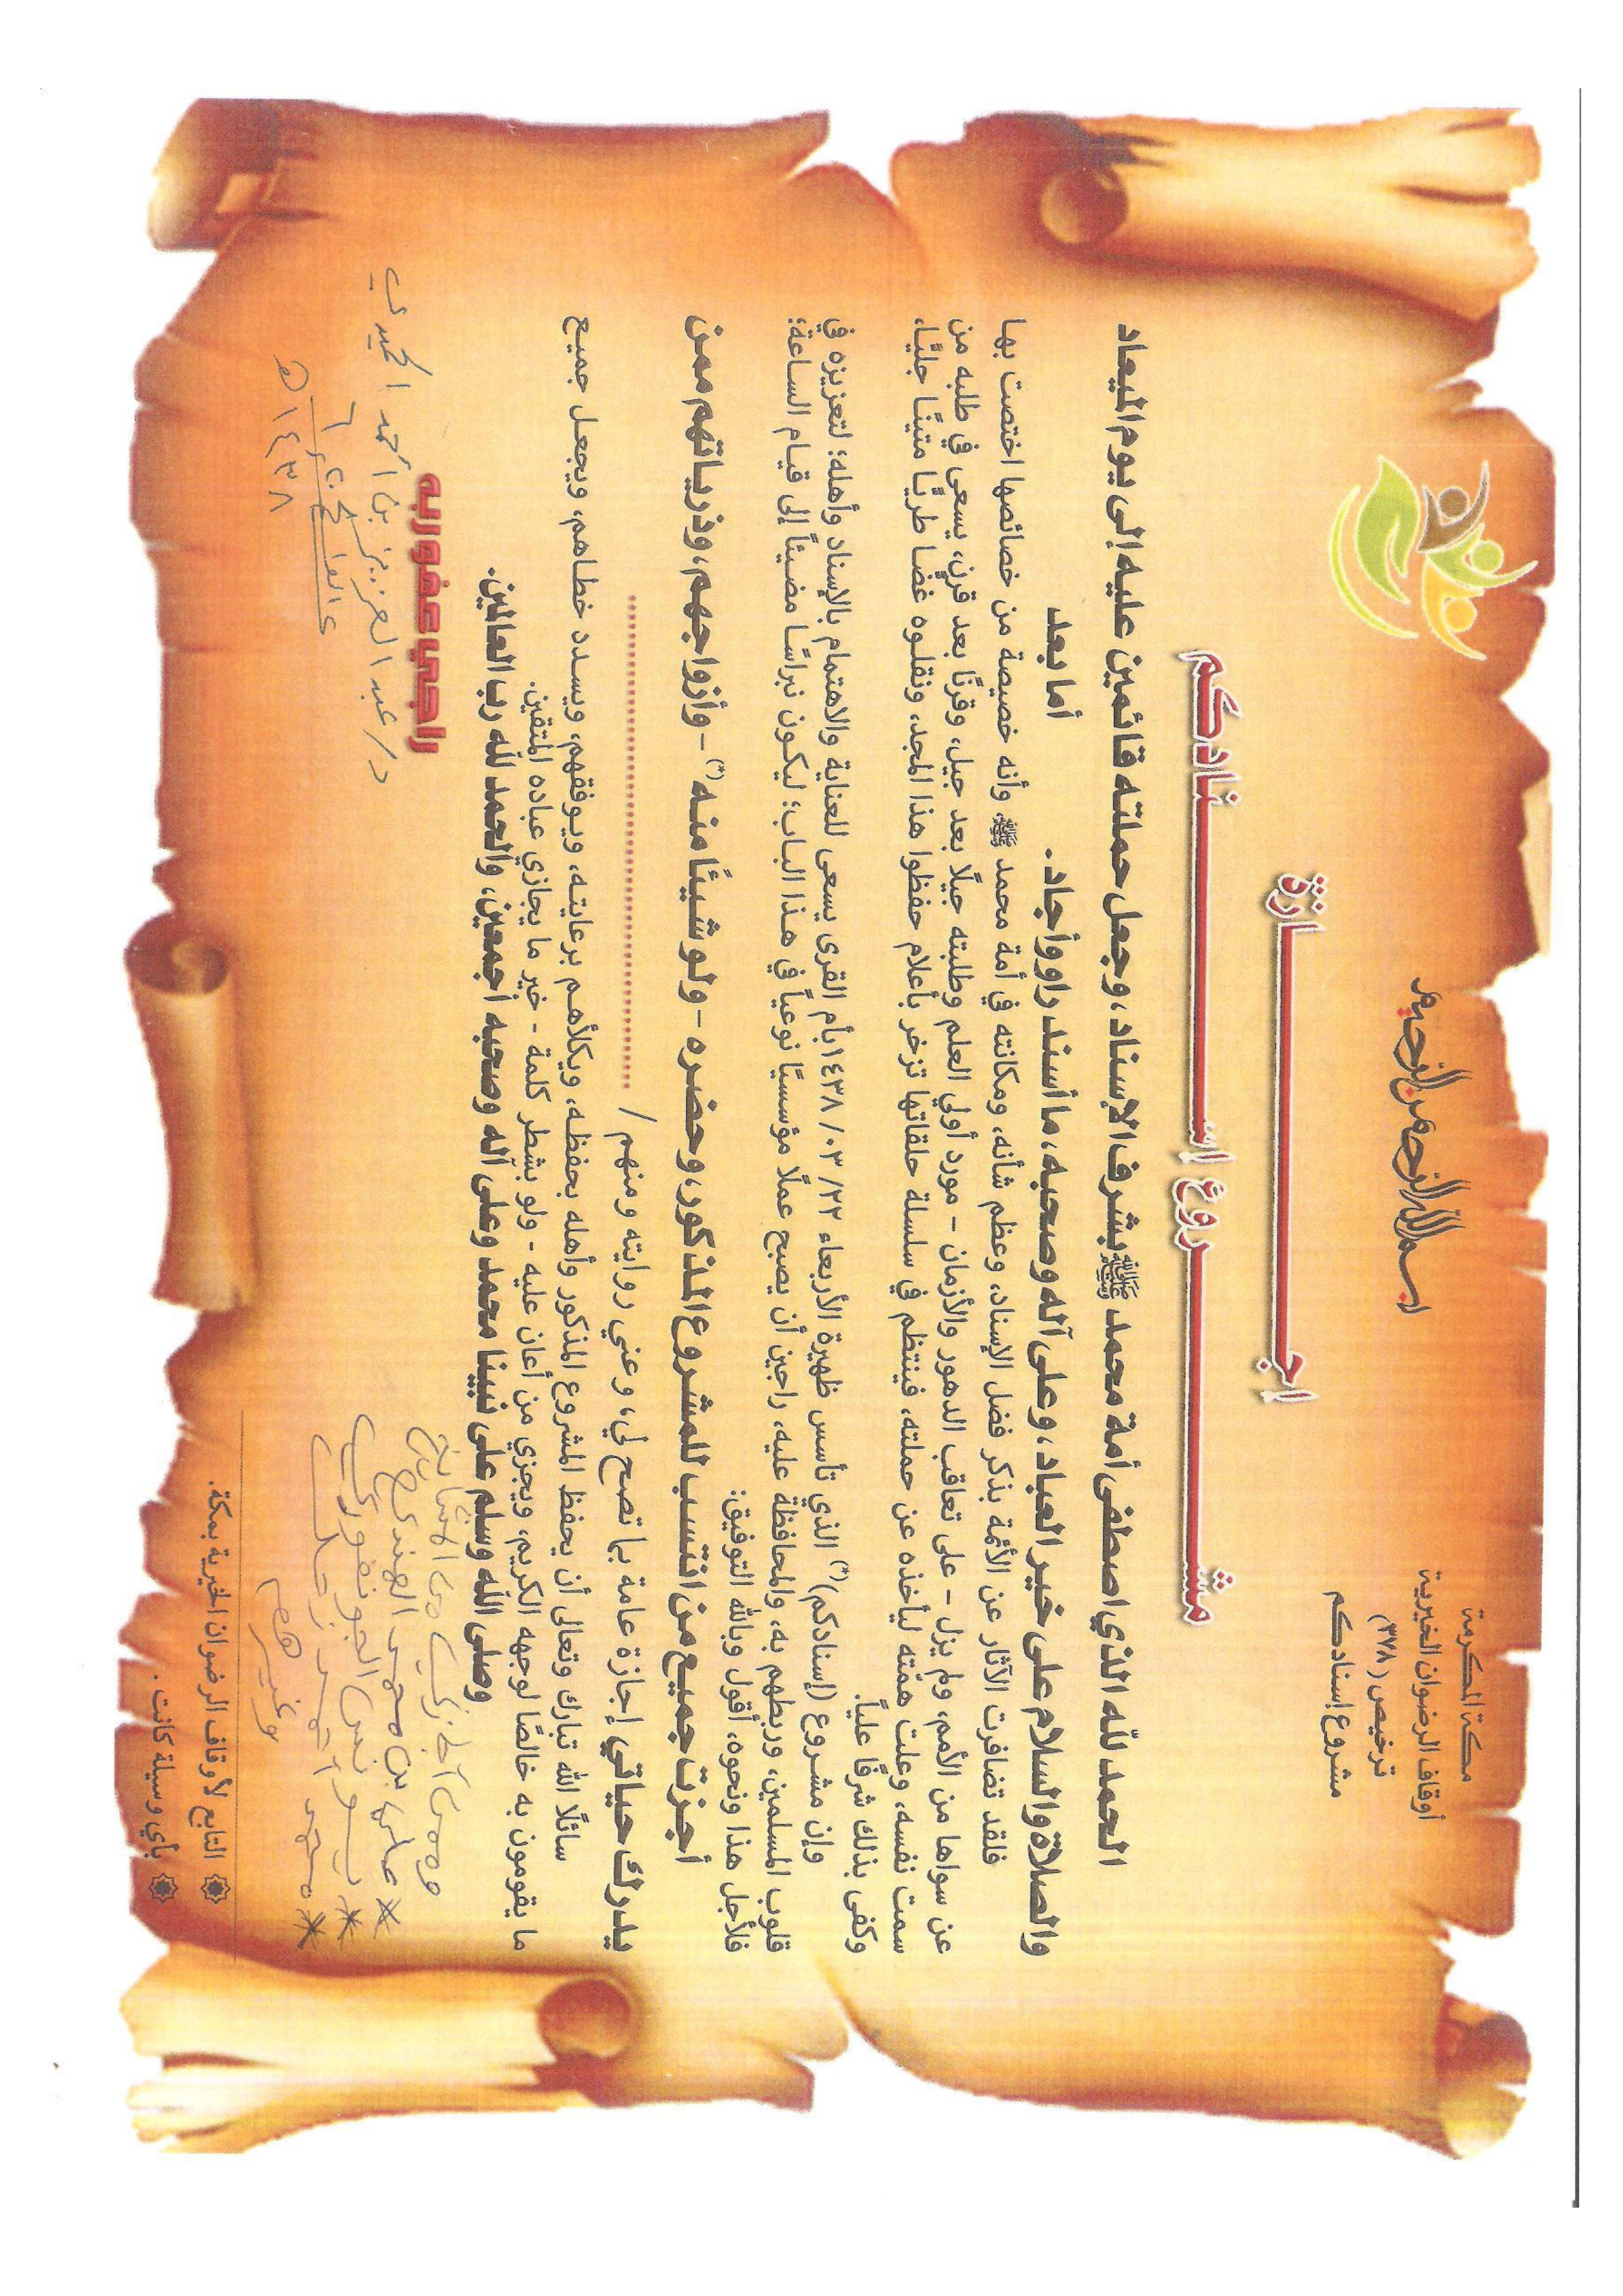 مكة المكرمة
أوقاف الرضوان الخيرية
ترخيص (٣٧٨)
مشروع إسنادكم
بسم الله الرحمن الرحيم
اجـــازة
مشـــروع إســـنادكم
الحمد لله الذي اصطفى أمة محمد ﷺ بشرف الإسناد، وجعل حملته قائمين عليه إلى يوم الميعاد
والصلاة والسلام على خير العباد، وعلى آله وصحبه، ما أسند راو وأجاد. أما بعد
فلقد تضافرت الآثار عن الأئمة بذكر فضل الإسناد، وعظم شأنه، ومكانته في أمة محمد ﷺ، وأنه خصيصة من خصائصها اختصت بها
عن سواها من الأمم، ولم يزل - على تعاقب الدهور والأزمان - مورد أولي العلم وطلبته جيلًا بعد جيل، وقرنًا بعد قرن، يسعى في طلبه من
سمت نفسه، وعلت همّته ليأخذه عن حملته، فينتظم في سلسلة حلقاتها تزخر بأعلام حفظوا هذا المجد، ونقلوه غضا طريًا متينًا جليًا،
وكفى بذلك شرفًا عليًا.
وإن مشروع (إسنادكم)(*) الذي تأسس ظهيرة الأربعاء ٢٢/ ٠٣/ ١٤٣٨ بأم القرى يسعى للعناية والاهتمام بالإسناد وأهله؛ لتعزيزه في
قلوب المسلمين، وربطهم به، والمحافظة عليه، راجين أن يصبح عملًا مؤسسيًا نوعياً في هذا الباب؛ ليكون نبراسًا مضيئاً إلى قيام الساعة؛
فلأجل هذا ونحوه، أقول وبالله التوفيق:
أجزت جميع من انتسب للمشروع المذكور، وحضره - ولو شيئًا منه(*) - وأزواجهم، وذرياتهم ممن
يدرك حياتي إجازة عامة بما تصح لي، وعني روايته ومنهم / ..............................
سائلًا الله تبارك وتعالى أن يحفظ المشروع المذكور وأهله بحفظه، ويكلأهم برعايته، ويوفقهم، ويسدد خطاهم، ويجعل جميع
ما يقومون به خالصًا لوجهه الكريم، ويجزي من أعان عليه - ولو بشطر كلمة - خير ما يجازي عباده المتقين.
وصلى الله وسلم على نبينا محمد وعلى آله وصحبه أجمعين، والحمد لله رب العالمين.
راجي عفو ربه
د/ عبد العزيز بن أحمد الحميدي
١٤٣٨ هـ
* يونس الجونفوري
وغيرهم
۞ التابع لأوقاف الرضوان الخيرية بمكة.
۞ بأي وسيلة كانت.